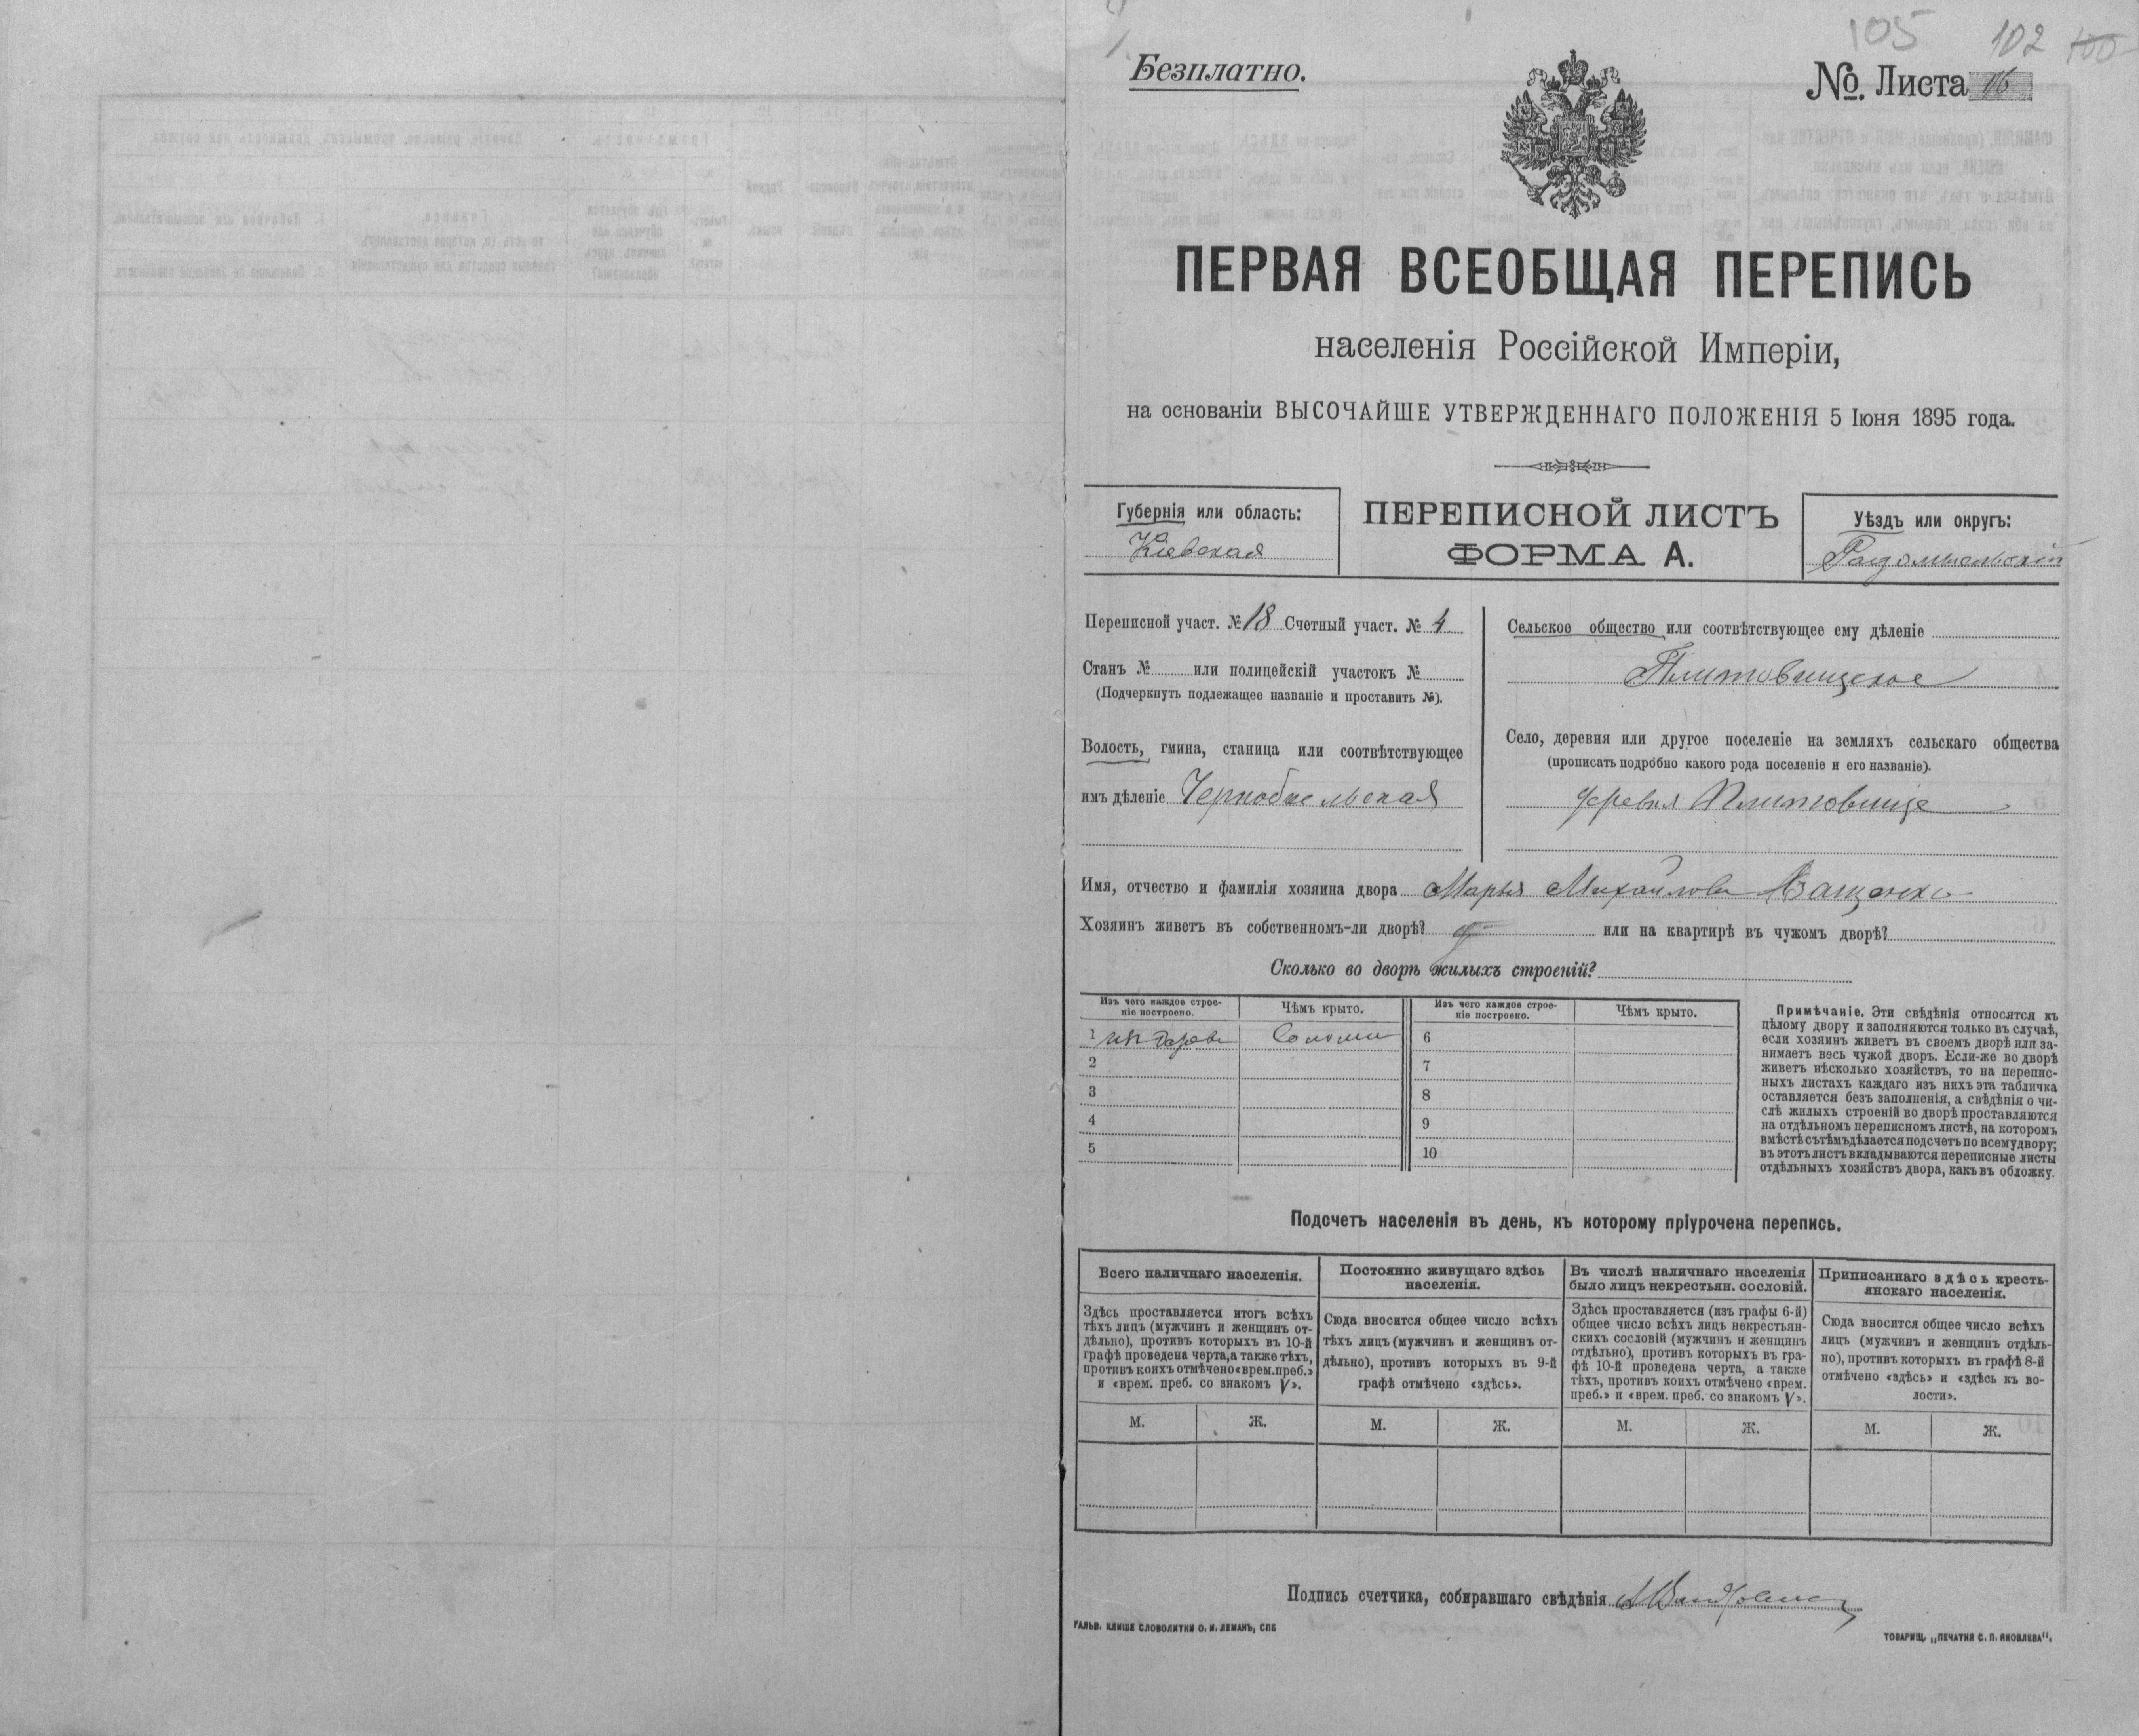 105 102 100
Безплатно.
№. Листа 16
ПЕРВАЯ ВСЕОБЩАЯ ПЕРЕПИСЬ
населенія Россійской Имперіи,
на основаніи ВЫСОЧАЙШЕ УТВЕРЖДЕННАГО ПОЛОЖЕНІЯ 5 Іюня 1895 года.
Губернія или область:
Кіевская
ПЕРЕПИСНОЙ ЛИСТЪ
ФОРМА А.
Уѣздъ или округъ:
Радомысльскій
Переписной участ. № 18 Счетный участ. № 4
Станъ № или полицейскій участокъ №
(Подчеркнуть подлежащее названіе и проставить №).
Волость, гмина, станица или соотвѣтствующее
имъ дѣленіе Чернобыльская
Сельское общество или соотвѣтствующее ему дѣленіе
Плитовищское
Село, деревня или другое поселеніе на земляхъ сельскаго общества
(прописать подробно какого рода поселеніе и его названіе).
деревня Плитовище
Имя, отчество и фамилія хозяина двора Марья Михайлова Ващенко
Хозяинъ живетъ въ собственномъ-ли дворѣ? или на квартирѣ въ чужомъ дворѣ?
Сколько во дворѣ жилыхъ строеній?
Изъ чего каждое строе-
ніе построено.
Чѣмъ крыто.
Изъ чего каждое строе-
ніе построено.
Чѣмъ крыто.
1 изъ дерева Соломы 6
2 7
3 8
4 9
5 10
Примѣчаніе. Эти свѣдѣнія относятся къ
цѣлому двору и заполняются только въ случаѣ,
если хозяинъ живетъ въ своемъ дворѣ или за-
нимаетъ весь чужой дворъ. Если-же во дворѣ
живетъ нѣсколько хозяйствъ, то на перепис-
ныхъ листахъ каждаго изъ нихъ эта табличка
оставляется безъ заполненія, а свѣдѣнія о чи-
слѣ жилыхъ строеній во дворѣ проставляются
на отдѣльномъ переписномъ листѣ, на которомъ
вмѣстѣ съ тѣмъ дѣлается подсчетъ по всему двору;
въ этотъ листъ вкладываются переписные листы
отдѣльныхъ хозяйствъ двора, какъ въ обложку.
Подсчетъ населенія въ день, къ которому пріурочена перепись.
Всего наличнаго населенія.
Здѣсь проставляется итогъ всѣхъ
тѣхъ лицъ (мужчинъ и женщинъ от-
дѣльно), противъ которыхъ въ 10-й
графѣ проведена черта, а также тѣхъ,
противъ коихъ отмѣчено «врем. преб.»
и «врем. преб. со знакомъ V».
Постоянно живущаго здѣсь
населенія.
Сюда вносится общее число всѣхъ
тѣхъ лицъ (мужчинъ и женщинъ от-
дѣльно), противъ которыхъ въ 9-й
графѣ отмѣчено «здѣсь».
Въ числѣ наличнаго населенія
было лицъ некрестьян. сословій.
Здѣсь проставляется (изъ графы 6-й)
общее число всѣхъ лицъ некрестьян-
скихъ сословій (мужчинъ и женщинъ
отдѣльно), противъ которыхъ въ гра-
фѣ 10-й проведена черта, а также
тѣхъ, противъ коихъ отмѣчено «врем.
преб.» и «врем. преб. со знакомъ V».
Приписаннаго здѣсь кресть-
янскаго населенія.
Сюда вносится общее число всѣхъ
лицъ (мужчинъ и женщинъ отдѣль-
но), противъ которыхъ въ графѣ 8-й
отмѣчено «здѣсь» и «здѣсь къ во-
лости».
М. Ж. М. Ж. М. Ж. М. Ж.
Подпись счетчика, собиравшаго свѣдѣнія
ГАЛЬВ. КЛИШЕ СЛОВОЛИТНИ О. И. ЛЕМАНЪ, СПБ
ТОВАРИЩ. „ПЕЧАТНЯ С. П. ЯКОВЛЕВА".